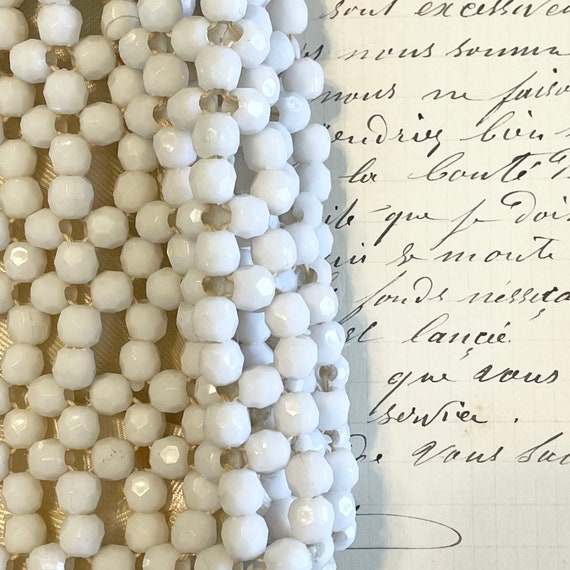 sont excessive
nous nous somm
nous ne faiso
endriez bien
la bonté
que je dois
se monte
fonds nécessai
est lancée
que vous
service.
de Vous sa